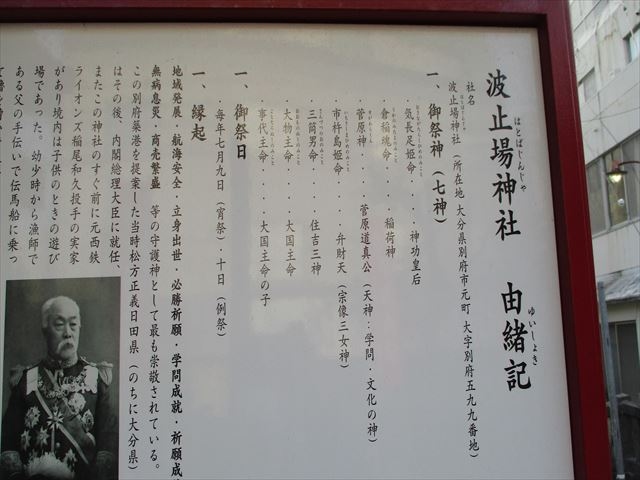 波止場神社　由緒記
はとばじんじゃ　ゆいしょき
社名
波止場神社（所在地 大分県別府市元町 大字別府五九九番地）
一、御祭神（七神）
・気長足姫命・・・・神功皇后
・倉稲魂命・・・・稲荷神
・菅原神・・・・菅原道真公（天神：学問・文化の神）
・市杵島姫命・・・・弁財天（宗像三女神）
・三筒男命・・・・住吉三神
・大物主命・・・・大国主命
・事代主命・・・・大国主命の子
一、御祭日
・毎年七月九日（宵祭）・十日（例祭）
一、縁起
地域発展・航海安全・立身出世・必勝祈願・学問成就・祈願成
無病息災・商売繁盛　等の守護神として最も崇敬されている。
この別府築港を提案した当時松方正義日田県（のちに大分県）
はその後、内閣総理大臣に就任、
またこの神社のすぐ前に元西鉄
ライオンズ稲尾和久投手の実家
があり境内は子供のときの遊び
場であった。幼少時から漁師で
ある父の手伝いで伝馬船に乗っ